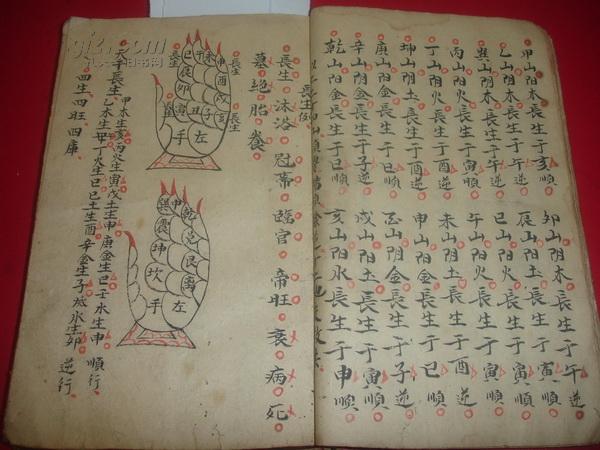 甲山阳木長生于亥順
乙山阴木長生于午逆
巽山阴木長生于午逆
丙山阳火長生于寅順
丁山阴火長生于酉逆
坤山阴土長生于酉逆
庚山阳金長生于巳順
辛山阴金長生于子逆
乾山阳金長生于巳順
卯山阴木長生于午逆
辰山阳土長生于寅順
巳山阳火長生于寅順
午山阳火長生于寅順
未山阴土長生于酉逆
申山阳金長生于巳順
酉山阴金長生于子逆
戌山阳土長生于寅順
亥山阳水長生于申順
長生 沐浴 冠帶 臨官 帝旺 衰 病 死
墓 絕 胎 養
長生
長生
長生
長生
午未申酉戌亥
巳辰卯寅丑子
左手
乾兌艮離
巽震坤坎
中
左手
甲木生亥丙火生寅戊土生申庚金生巳壬水生申 順行
天干長生乙木生 丁火生 己土生酉辛金生子癸水生卯 逆行
四生四旺四庫